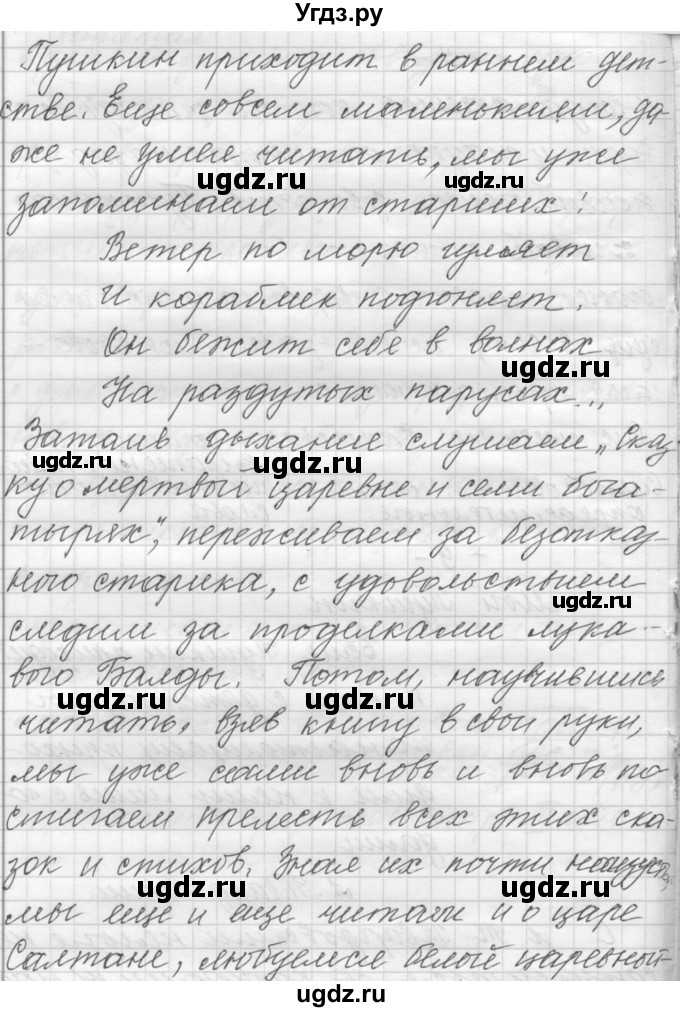 Угдз.ру
Пушкин приходит в раннем дет-
стве. Еще совсем маленькими, да-
же не умея читать, мы уже
ugdz.ru ugdz.ru
запоминаем от старших:
Ветер по морю гуляет
И кораблик подгоняет.
Он бежит себе в волнах
ugdz.ru
На раздутых парусах...
Затаив дыхание слушаем „Сказ
ugdz.ru ugdz.ru
ку о мертвой царевне и семи бога-
тырях", переживаем за безотказ-
ного старика, с удовольствием
ugdz.ru
следим за проделками лука-
вого Балды. Потом, научившись
ugdz.ru ugdz.ru
читать, взяв книгу в свои руки,
мы уже сами вновь и вновь по
стигаем прелесть всех этих ска-
зок и стихов. Зная их почти наизусть,
ugdz.ru ugdz.ru
мы еще и еще читаем и о царе
Салтане, любуемся белой царевной-
ugdz.ru